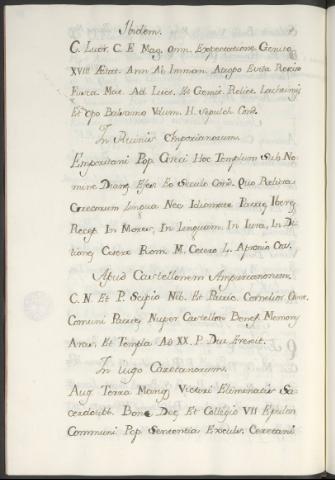 Ibidem.
C. Lucr. C. F. Mag. Omn. Expectatione Genito
XVIII Ætat. Ann Ab Immom. Atropo Evita Repiso
Fusca Mar. Ad Luct. Et Gemit. Relict. Lachrimis
Et Opo Balsamo Velum. H. Sepulch. Cond.
In Ruinis Emporianorum.
Emporitani Pop. Græci Hoc Templum Sub No-
mine Dianæ Ephes. Eo Seculo Cond. Quo Relicta
Græcorum Lingua Nec Idiomate Patriæ Iberæ
Recep. In Mores, In Linguam. In Iura, In Di-
tione Cesere Rom. M. Cetego L. Apronio Cos.
Apud Castellonem Ampurianorum.
C. N. Et P. Scipio Nib. Et Patric. Cornelior. Gent.
Comuni Patriæ, Nuper Castellon Benef. Memory
Aras. Et Templa Ad XX. P. Dux Erexit.
In Iugo Caretanorum.
Aug. Terra Mariq. Victori Eliminatis Sa-
cerdotibb. Bonæ Deæ Et Collegio VII Epulon
Communi Pop. Sententia Exculis. Ceretani